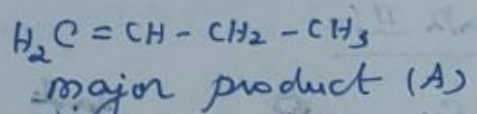 H₂C = CH - CH₂ - CH₃
major product (A)